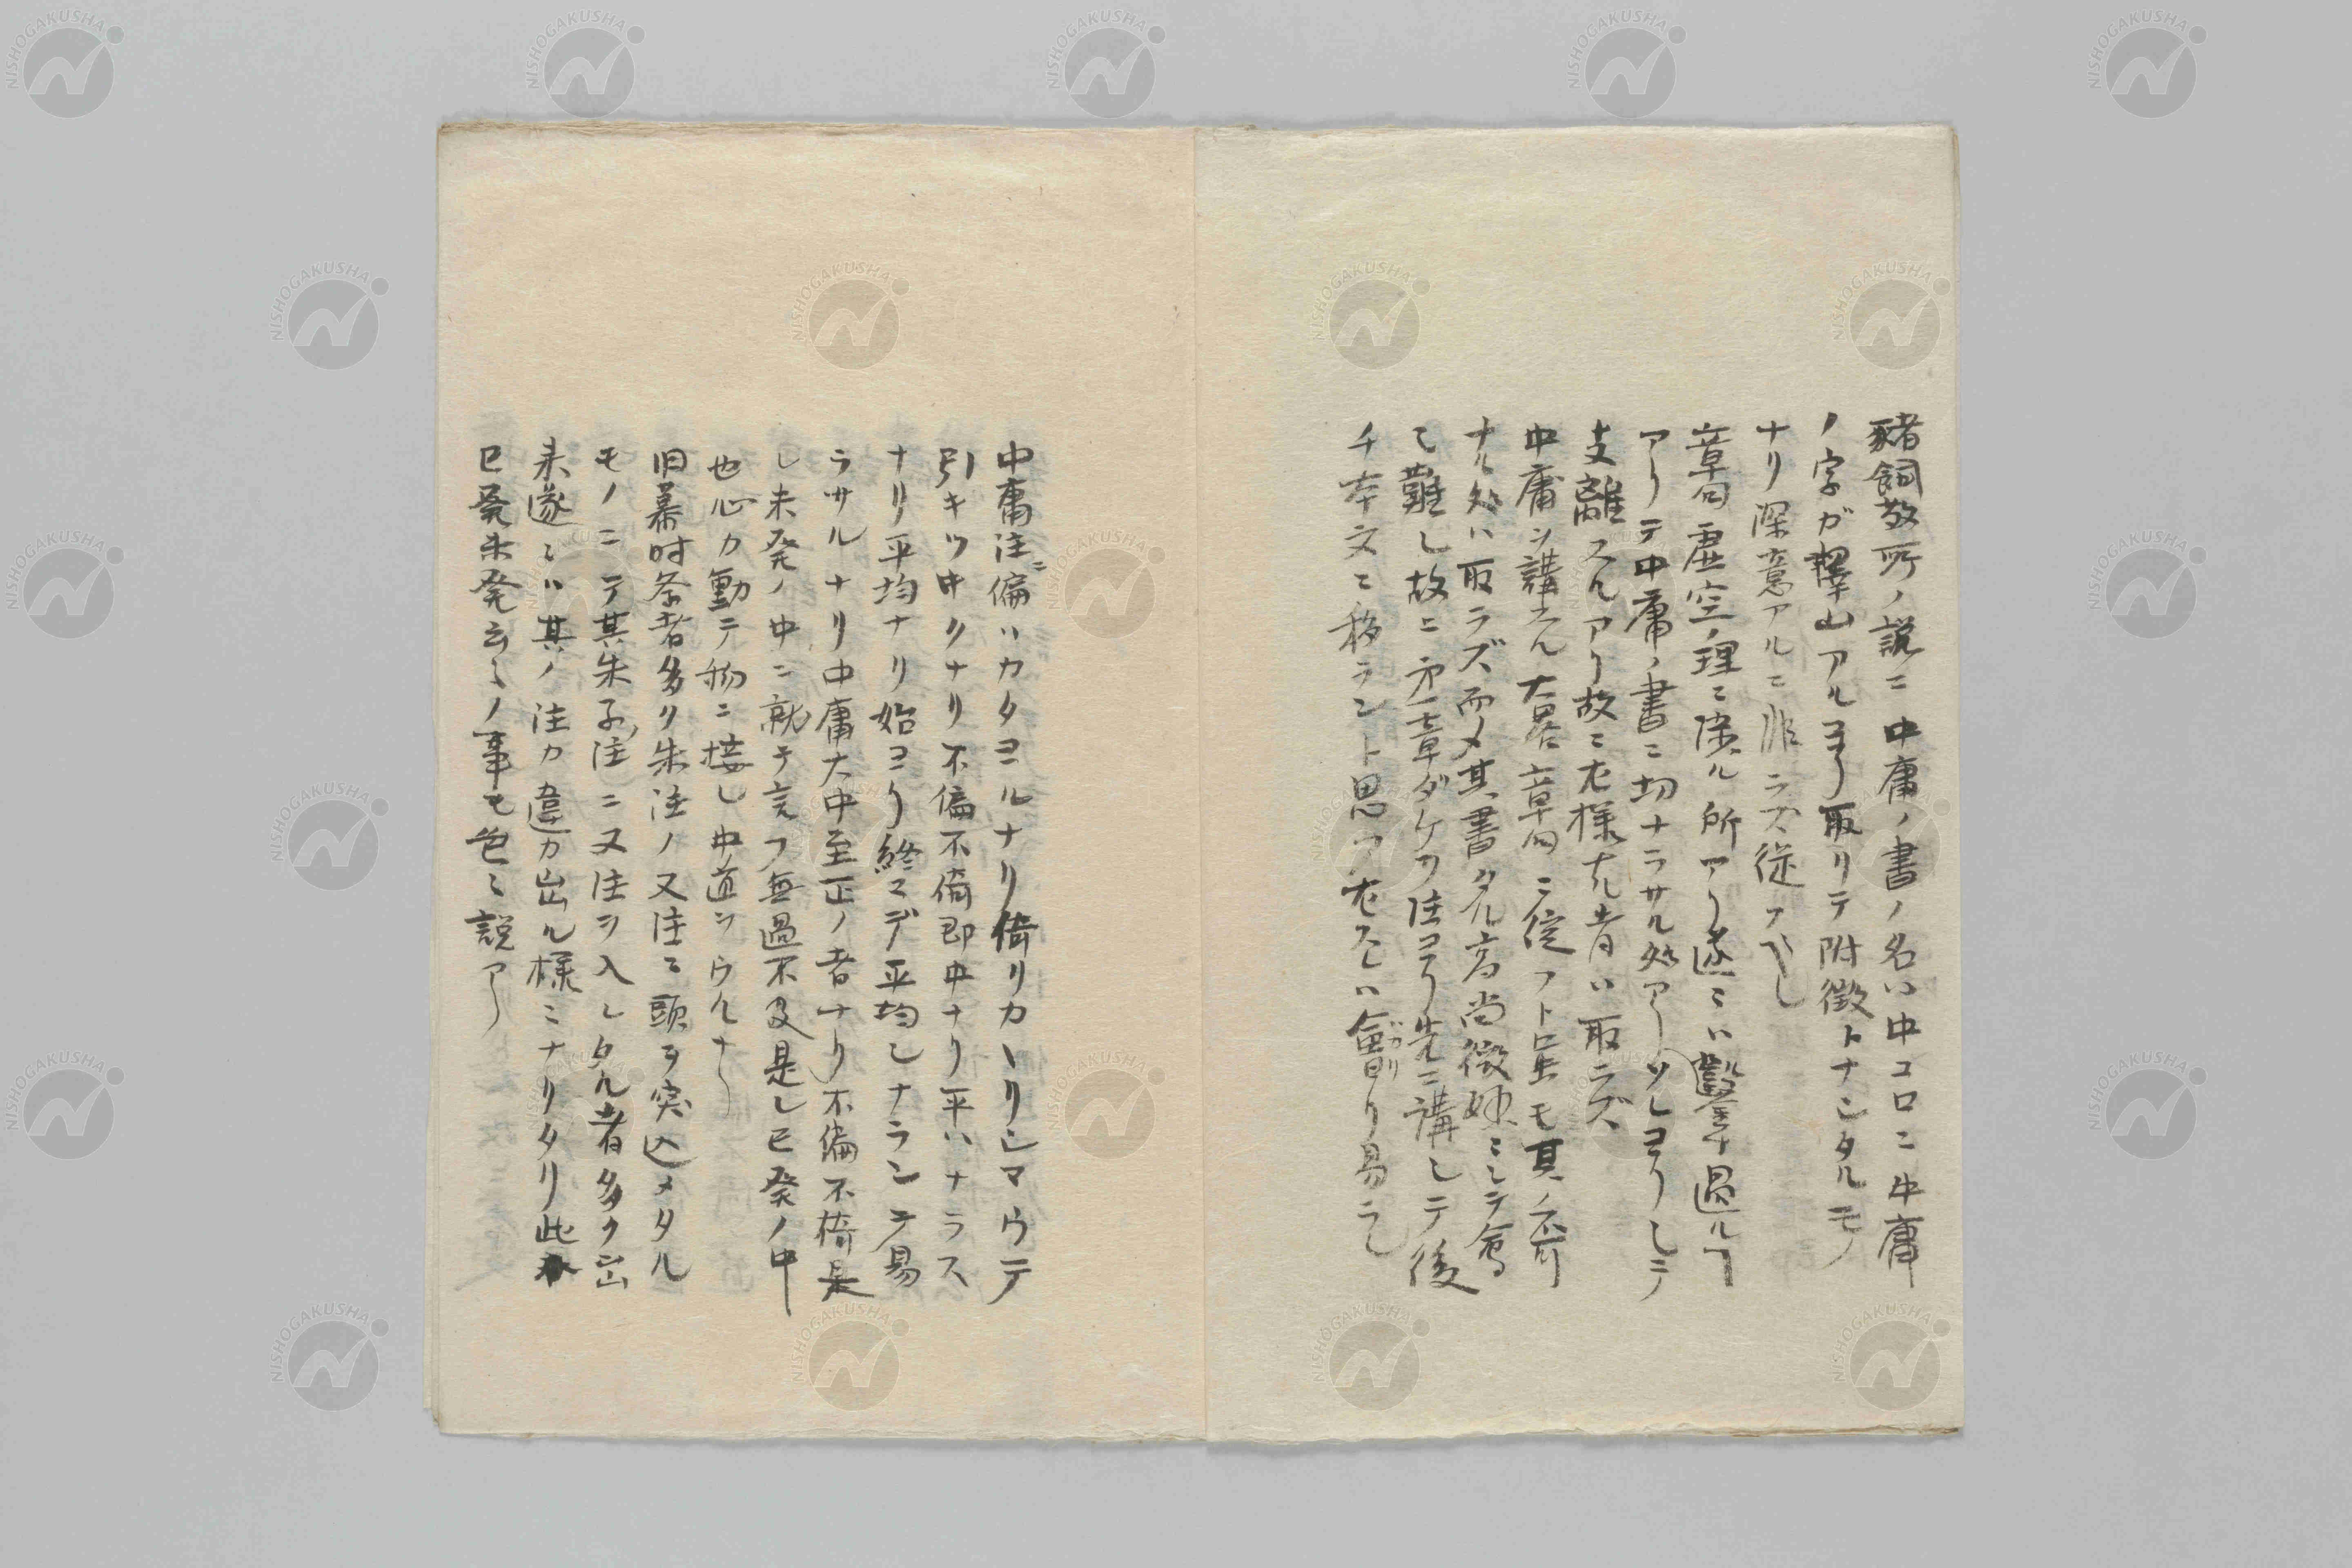 豬飼敬所ノ説ニ中庸ノ書ノ名ハ中コロニ中庸
ノ字ガ澤山アルヨリ取リテ附徴トナシタルモノ
ナリ深意アルニ非ラズ従フベし
章句虚空ノ理ニ陥ル所アリ遂ニハ鑿チ過ルヿ
アリテ中庸ノ書ニ切ナラサル処アリソレヨリして
支離スルアリ故ニ左様ナル者ハ取ラズ
中庸ヲ講スル大畧章句ニ従フト虽モ其ノ
ナル処ハ取ラズ而メ其書タル高尚微妙ニして會
し難し故ニ第一章ダケヲ注ヨリ先ニ講して後
チ本文ニ移ラント思フ左スレハ會り易ラし
中庸注ニ偏ハカタヨルナリ倚リカヽリしマウテ
引キツ中クナリ不偏不倚即中ナリ平ハナラス
ナリ平均ナリ始ヨリ終マデ平均しナランテ易
ラサルナリ中庸大中至正ノ者ナリ不偏不倚是
し未発ノ中ニ就テ言フ無過不及是し已発ノ中
也心カ動テ物ニ接し中道ヲウルナリ
旧幕時ノ者多ク朱注ノ又注ニ頭ヲ突込メタル
モノニテ其朱子注ニ又注ヲ入しタル者多ク出
来遂ニハ其ノ注カ違カ出ル様ニナリタリ此
已発未発云々ノ事モ色々説アリ
NISHOGAKUSHA